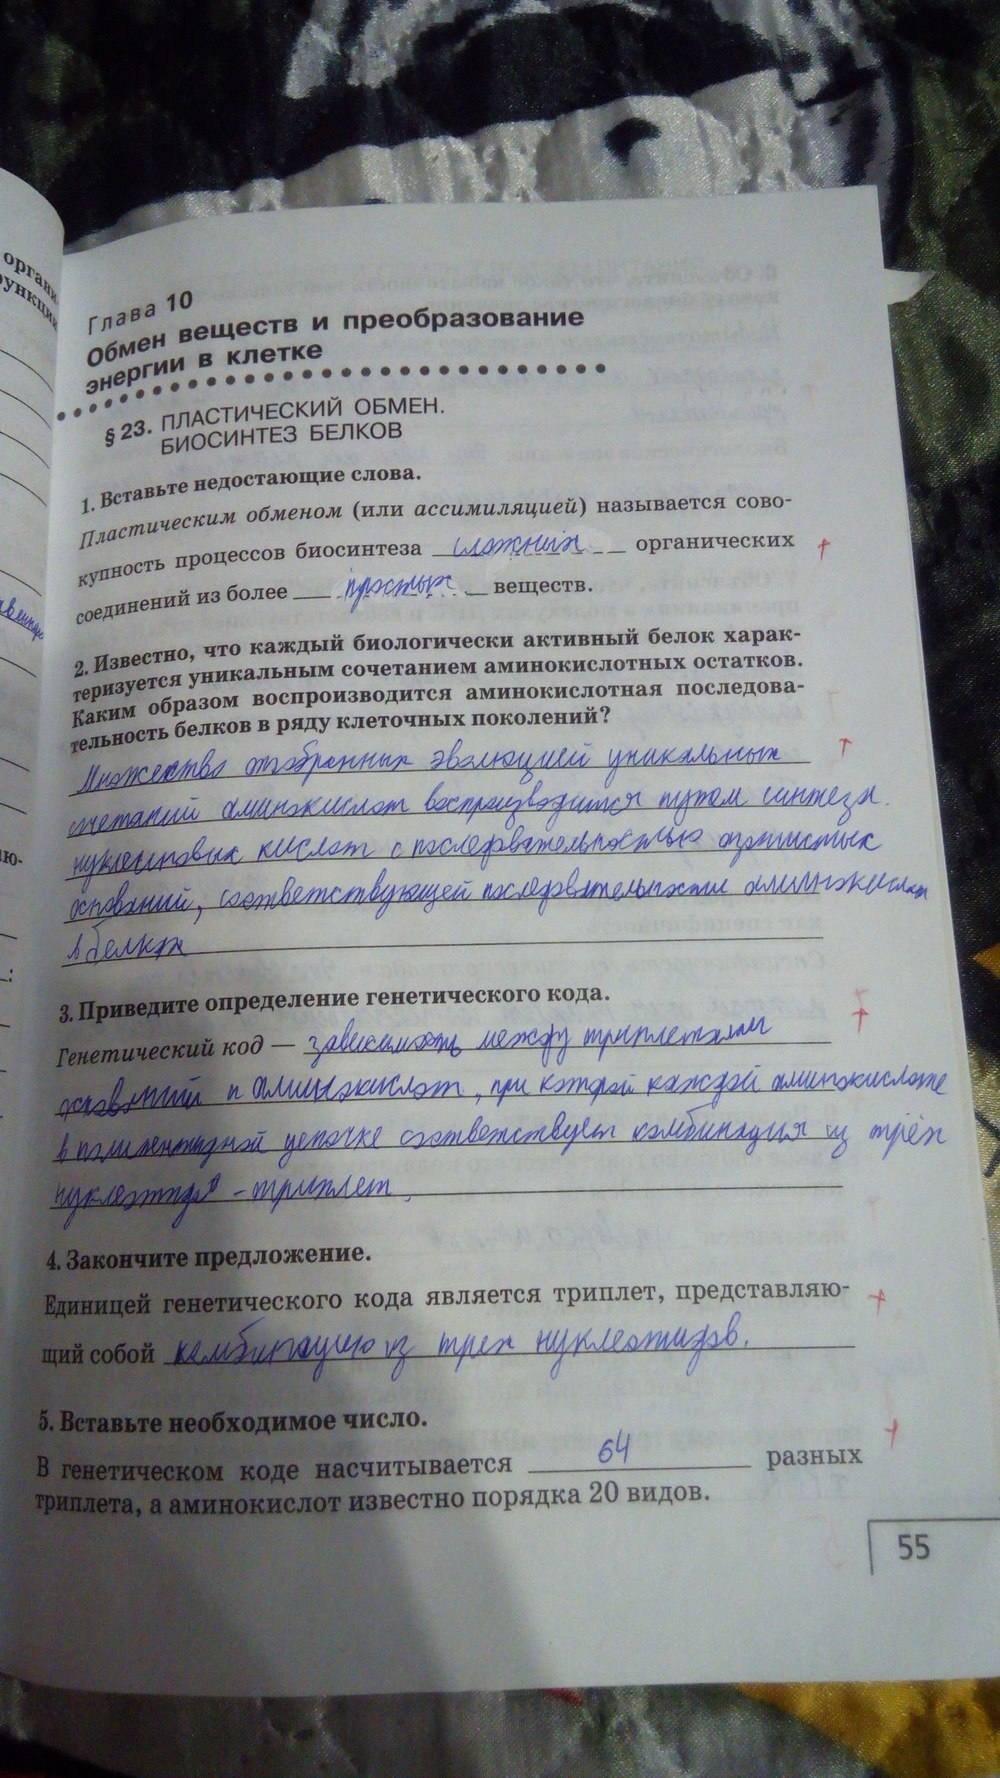 органи
функции
Глава 10
Обмен веществ и преобразование
энергии в клетке
§ 23. ПЛАСТИЧЕСКИЙ ОБМЕН.
БИОСИНТЕЗ БЕЛКОВ
1. Вставьте недостающие слова.
Пластическим обменом (или ассимиляцией) называется сово-
купность процессов биосинтеза сложных органических +
соединений из более простых веществ.
2. Известно, что каждый биологически активный белок харак-
теризуется уникальным сочетанием аминокислотных остатков.
Каким образом воспроизводится аминокислотная последова-
тельность белков в ряду клеточных поколений?
Множество отобранных эволюцией уникальных +
сочетаний аминокислот воспроизводится путём синтеза
нуклеиновых кислот с последовательностью азотистых
оснований, соответствующей последовательности аминокислот
в белках
3. Приведите определение генетического кода.
Генетический код — зависимость между триплетами +
оснований и аминокислот, при которой каждой аминокислоте
в полипептидной цепочке соответствует комбинация из трёх
нуклеотидов - триплет.
4. Закончите предложение.
Единицей генетического кода является триплет, представляю- +
щий собой комбинацию из трех нуклеотидов.
5. Вставьте необходимое число.
В генетическом коде насчитывается 64 разных +
триплета, а аминокислот известно порядка 20 видов.
55